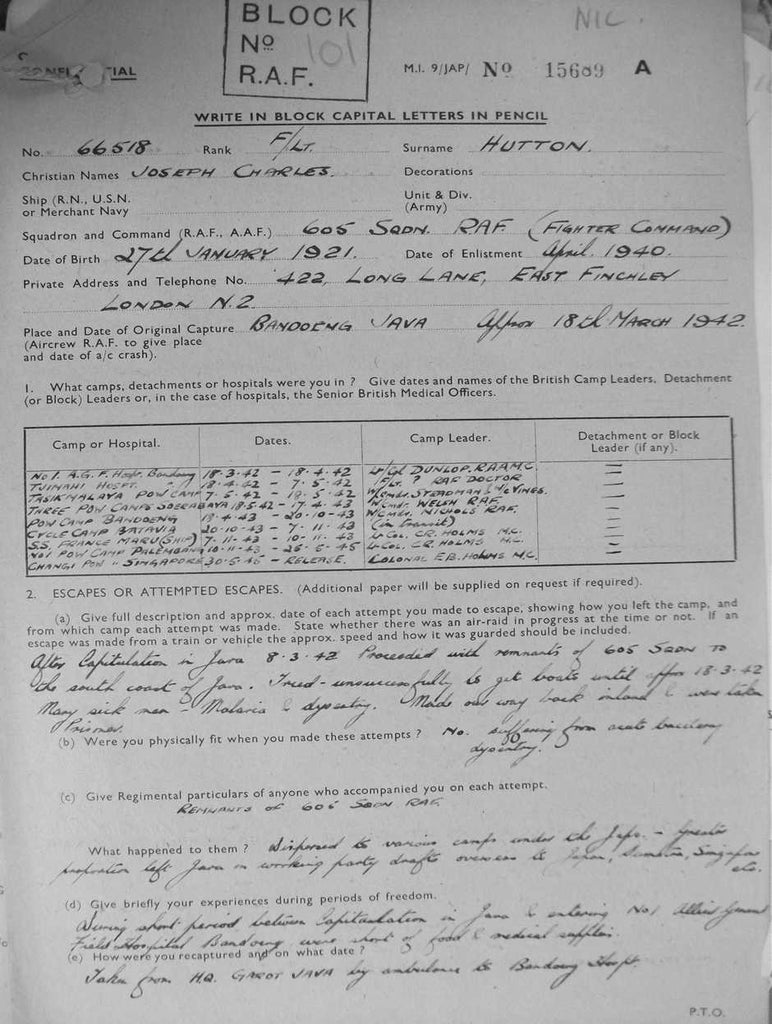 BLOCK
No 101
R.A.F.
NIC.
M.I. 9/JAP/ No 15689 A
WRITE IN BLOCK CAPITAL LETTERS IN PENCIL
No. 66518 Rank F/LT. Surname HUTTON.
Christian Names JOSEPH CHARLES. Decorations
Ship (R.N., U.S.N. Unit & Div.
or Merchant Navy (Army)
Squadron and Command (R.A.F., A.A.F.) 605 SQDN. RAF (FIGHTER COMMAND)
Date of Birth 27th JANUARY 1921. Date of Enlistment April. 1940.
Private Address and Telephone No. 422, LONG LANE, EAST FINCHLEY
LONDON N.2
Place and Date of Original Capture BANDOENG JAVA Approx 18th MARCH 1942.
(Aircrew R.A.F. to give place
and date of a/c crash).
1. What camps, detachments or hospitals were you in ? Give dates and names of the British Camp Leaders, Detachment
(or Block) Leaders or, in the case of hospitals, the Senior British Medical Officers.
Camp or Hospital. Dates. Camp Leader. Detachment or Block
Leader (if any).
No 1. A.G.F. Hospt. Bandoeng 18-3-42 - 18-4-42 Lt/Col DUNLOP. RAAMC. —
TJIMAHI HOSPT. 18-4-42 - 7-5-42 F/Lt. ? RAF DOCTOR —
TASIKMALAYA POW CAMP 7-5-42 - 18-5-42 W/Cmdr. STEADMAN & W/C VINES. —
THREE POW CAMPS SOERABAYA 18-5-42 - 17-4-43 W/Cmdr. WELSH RAF. —
POW CAMP BANDOENG 18-4-43 - 20-10-43 W/Cmdr. NICHOLS RAF. —
CYCLE CAMP BATAVIA 20-10-43 - 7-11-43 (in transit) —
S.S. FRANCE MARU (SHIP) 7-11-43 - 10-11-43 Lt-Col. C.R. HOLMS M.C. —
No1 POW CAMP PALEMBANG 10-11-43 - 26-5-45 Lt-Col. C.R. HOLMS M.C. —
CHANGI POW " SINGAPORE 30-5-45 - RELEASE. COLONEL E.B. HOLMS M.C. —
2. ESCAPES OR ATTEMPTED ESCAPES. (Additional paper will be supplied on request if required).
(a) Give full description and approx. date of each attempt you made to escape, showing how you left the camp, and
from which camp each attempt was made. State whether there was an air-raid in progress at the time or not. If an
escape was made from a train or vehicle the approx. speed and how it was guarded should be included.
After Capitulation in Java 8-3-42 Proceeded with remnants of 605 SQDN TO
the south coast of Java. Tried - unsuccessfully to get boats until approx 18-3-42
Many sick men - Malaria & dysentry. Made our way back inland & were taken
Prisoner.
(b) Were you physically fit when you made these attempts ? No. suffering from acute bacillary
dysentry.
(c) Give Regimental particulars of anyone who accompanied you on each attempt.
REMNANTS OF 605 SQDN RAF
What happened to them ? Dispersed to various camps under the Japs. - Greater
proportion left Java on working party drafts overseas to Japan, Sumatra, Singapore
etc.
(d) Give briefly your experiences during periods of freedom.
During short period between Capitulation in Java & entering No1 Allied General
Field Hospital Bandoeng were short of food & medical supplies.
(e) How were you recaptured and on what date ?
Taken from H.Q. GAROT JAVA by ambulance to Bandoeng Hospt.
P.T.O.